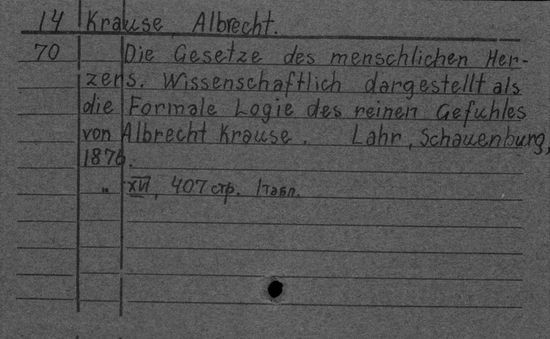 14 Krause, Albrecht.
70 Die Gesetze des menschlichen Her-
zens. Wissenschaftlich dargestellt als
die Formale Logie des reinen Gefuhles
von Albrecht Krause. Lahr, Schauenburg,
1876.
" XVI, 407 стр. 1 табл.